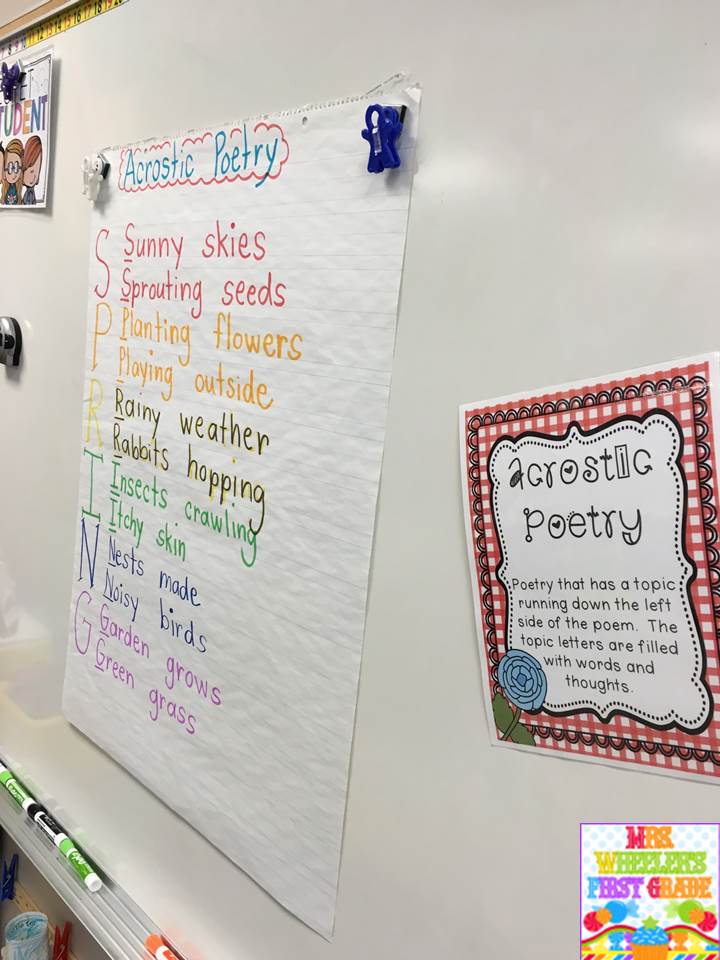 STUDENT
Acrostic Poetry
S
Sunny skies
Sprouting seeds
P
Planting flowers
Playing outside
R
Rainy weather
Rabbits hopping
I
Insects crawling
Itchy skin
N
Nests made
Noisy birds
G
Garden grows
Green grass
acrostic
Poetry
Poetry that has a topic
running down the left
side of the poem. The
topic letters are filled
with words and
thoughts.
MRS.
WHEELER'S
FIRST GRADE